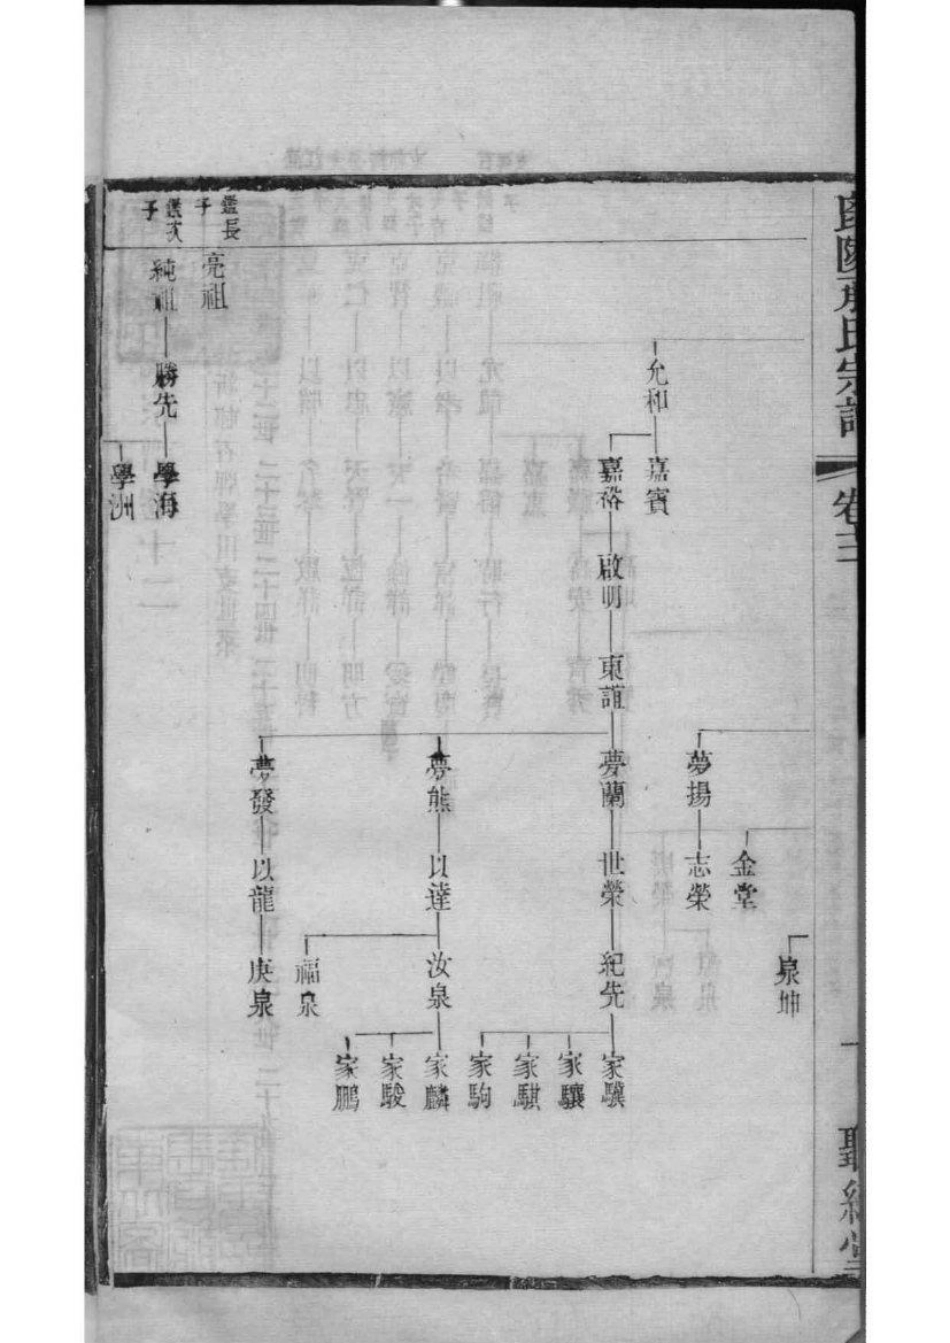 氏宗譜
卷三
泉坤
金堂
夢揚
志榮
允和
嘉賓
嘉裕
啟明
東誼
夢蘭
世榮
紀先
家驥
家驤
家騏
家駒
夢熊
以達
汝泉
家麟
家駿
家鵬
福泉
夢發
以龍
庚泉
鑑長子
亮祖
鑑次子
純祖
勝先
學海
學洲